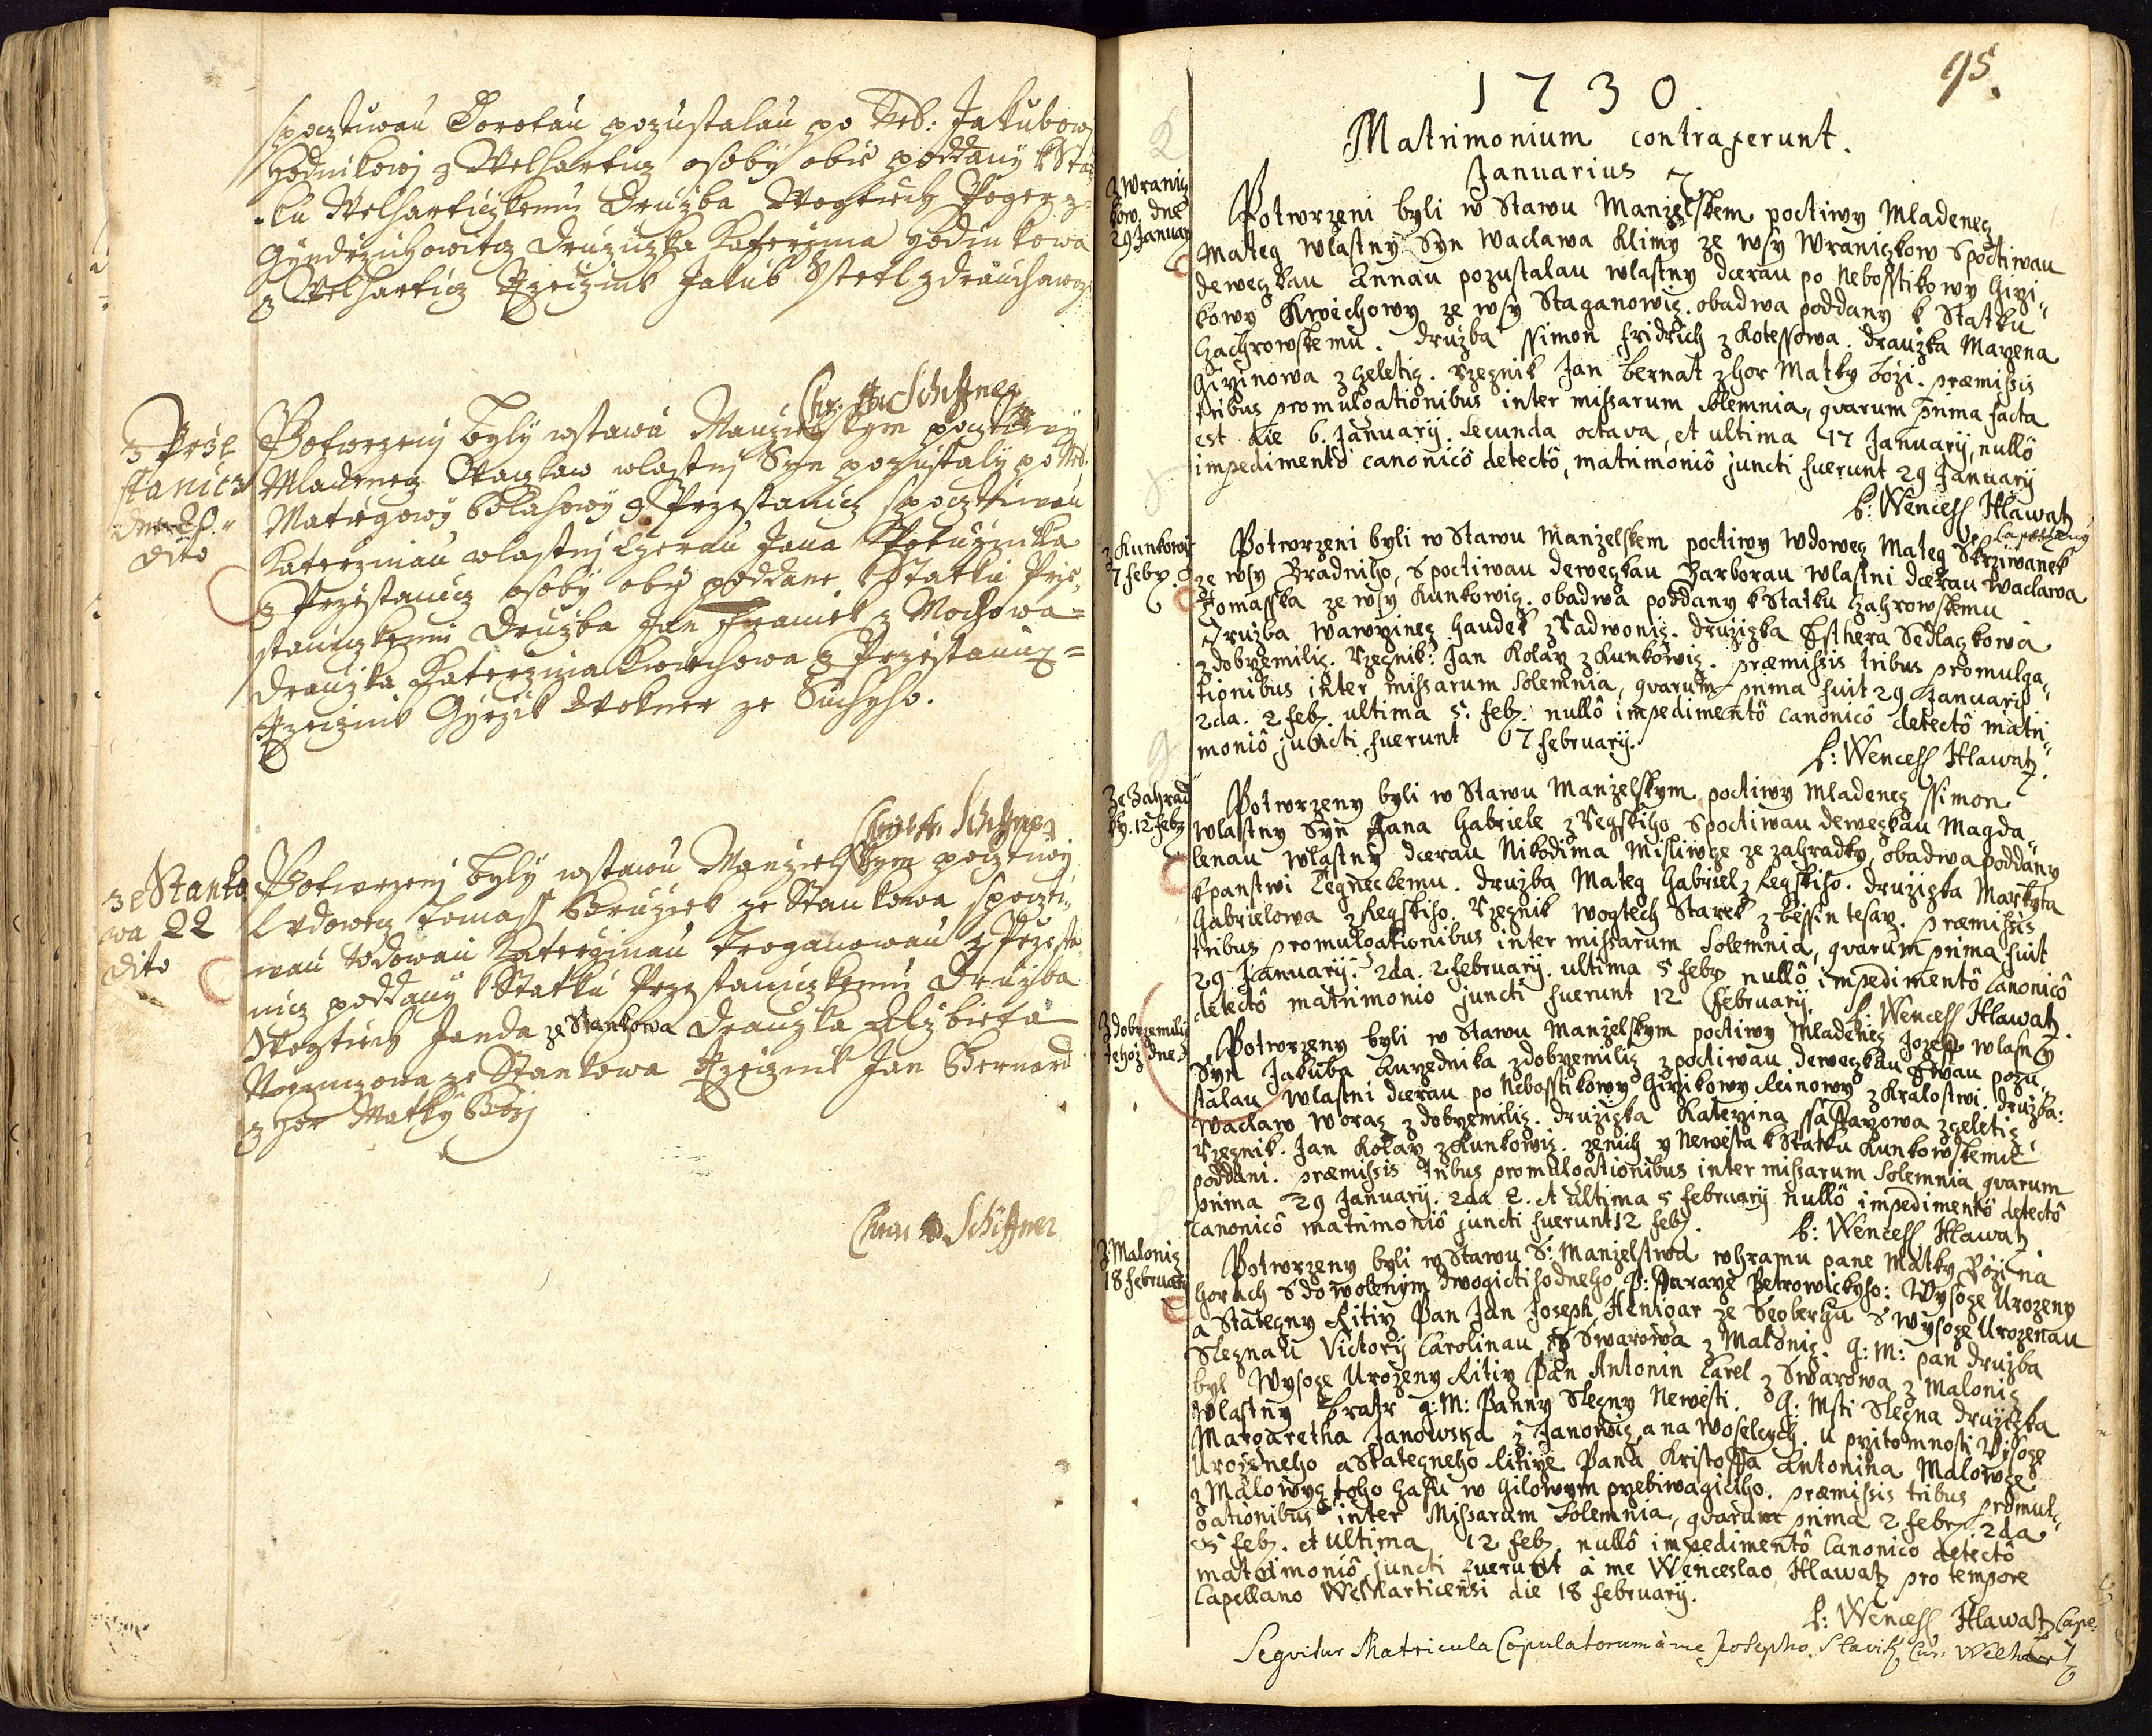 spocztiwau Dorotau pozustalau po Neb: Jakubowj
Hodinkowj z Welharticz osoby obie poddany k Stat=
ku Welharticzkemu Druzba Wogtiech
Druziczka Katerzina Hodinkowa
z Welharticz Rzecznik Jakub
Schiffner
z Prze
stanicz
dito
Potwrzenj byly w stawu Manzielskym pocztiwy
Mladenecz Waczlaw wlastnj Syn pozustaly po Neb:
Matiegowj z Przestanicz spocztiwau
Katerzinau wlastnj Czerau Jana
z Przestanicz osoby obie poddane k Statku Prze=
staniczkemu Druzba Jan z Mochowa=
Drauzka Katerzina z Przestanicz=
Rzecznik Girzik Wokner ze Suchyho.
Schiffner
ze Stanko
wa 22
dito
Potwrzenj byly w stawu Manzielskym pocztiwy
Wdowecz Tomass ze Stankowa spoczti=
wau Wdowau Katerzinau z Przesta=
nicz poddany k Statku Przestaniczkemu Druzba
Wogtiech Janda ze Stankowa Drauzka Alzbieta
ze Stankowa Rzecznik Jan Bernard
z Hor Matky Bozj
Schiffner
95.
1730.
Matrimonium contraxerunt.
Januarius
z Wranicz
kow, dne
29 Januarij
Potwrzeni byli w Stawu Manzelskem poctiwy Mladenecz
Mateg wlastny Syn Waclawa Klimy ze wsy Wraniczkow S poctiwau
deweczkau Annau pozustalau wlastny dcerau po Nebosstikowy Girzi=
kowy Kwichowy ze wsy Staganowicz. obadwa poddany k Statku
Czachrowskemu. druzba Ssimon Fridrich z Kotessowa. drauzka Marzena
Girzinowa z Zeleticz. Rzecznik Jan Bernat z hor Matky Bozi. præmissis
tribus promulgationibus inter missarum solemnia, qvarum prima facta
est die 6. Januarij. Secunda octava, et ultima 17 Januarij, nullô
impedimentô canonicô detectô, matrimoniô juncti fuerunt 29 Januarij
P: Wencesl Hlawatz
Capellany
z Kunkowicz
7 febr.
Potwrzeni byli w Stawu Manzelskem poctiwy Wdowecz Mateg Skrziwanek
ze wsy Bradniho, S poctiwau deweczkau Barborau wlastni dcerau Waclawa
Tomasska ze wsy Kunkowicz. obadwa poddany k Statku Czahrowskemu
Druzba Wawrzinecz Haudek z Radwonicz. druziczka Esthera Sedlaczkowa
z dobrzemilicz. Rzecznik: Jan Kolarz z Kunkowicz. præmissis tribus promulga=
tionibus inter missarum solemnia, qvarum prima fuit 29 Januarij
2da. 2 feb. ultima 5. feb. nullô impedimentô canonicô detectô matri=
moniô juncti fuerunt 7 februarij.
P: Wencesl Hlawatz.
Ze Zahrad
ky. 12 feb
Potwrzeny byli w Stawu Manzelskym poctiwy mladenecz Ssimon
wlastny Syn Jana Gabriele z Regskiho S poctiwau deweczkau Magda=
lenau wlastny dcerau Nikodima Misliwcze ze zahradky, obadwa poddany
k panstwi Tegneckemu. druzba Mateg Gabriel z Regskiho. druziczka Markyta
Gabrielowa z Regskiho. Rzecznik Wogtech Starek z Bessin tesarz. præmissis
tribus promulgationibus inter missarum Solemnia, qvarum prima fuit
29 Januarij. 2da. 2 februarij. ultima 5 feb nullô impedimentô Canonicô
detectô matrimonio juncti fuerunt 12 februarij.
P: Wencesl Hlawatz.
z dobrzemilicz
tehoz dne
Potwrzeny byli w Stawu Manzelskym poctiwy Mladenecz Jozeff wlastny
Syn Jakuba Aurzednika z dobrzemilicz z poctiwau deweczkau Ewau pozu=
stalau wlastni dcerau po Nebosstikowy Girzikowy Reinowy z Kralostwi druzba:
Waclaw Woracz z dobrzemilicz. druziczka Katerzina Ssaffarzowa z Zeleticz
Rzecznik. Jan Kolarz z Kunkowicz. zenich y Newesta k Statku Kunkowskemu
poddani. præmissis tribus promulgationibus inter missarum Solemnia qvarum
prima 29 Januarij. 2da 2. et ultima 5 februarij nullô impedimentô detectô
Canonicô matrimoniô juncti fuerunt 12 feb.
P: Wencesl Hlawatz
z Malonicz
18 februarij
Potwrzeny byli w Stawu S: Manzelstwa w hramu pane Matky Bozi na
horach S dowolenym dwogictihodneho P: Fararze Petrowickyho: Wysoze Urozeny
a Stateczny Ritirz Pan Jan Joseph Henigar ze Seebergu S Wysoze Urozenau
Slecznau Victory Carolinau z Swarowa z Malonicz. G: M: pan druzba
byl Wysoze Urozeny Ritirz Pan Antonin Karel z Swarowa z Malonicz
wlastny bratr g: M: Panny Sleczny Newesti. G: Msti Sleczna druziczka
Margaretha Janowska z Janowicz, a na Woselcych. u przitomnosti Wysoze
Urozeneho a Stateczneho Ritirze Pana Kristoffa Antonina Malowcze
z Malowycz toho czasu w Gilowym przebiwagiciho. præmissis tribus promul=
gationibus inter Missarum Solemnia, qvarum prima 2 febr. 2da
5 feb. et ultima 12 feb. nullô impedimentô Canonico detectô
matrimoniô juncti fuerunt à me Wenceslao Hlawatz pro tempore
Capellano Welharticensi die 18 februarij.
P: Wencesl Hlawatz Cape:
Seqvitur Matricula Copulatorum à me Josepho Slavik Cur. Welhart